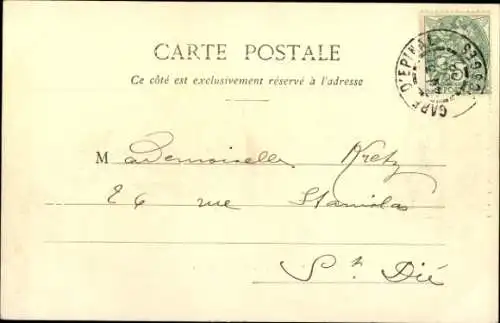 CARTE POSTALE
Ce côté est exclusivement réservé à l'adresse
GARE D'EPINAL
VOSGES
Mademoiselle Kretz
26 rue Stanislas
St Dié